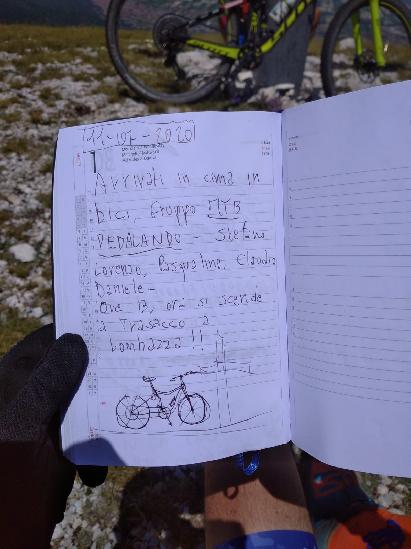 11-07-2020
Arrivati in cima in
bici, Gruppo MTB
PEDALANDO - Stefano
Lorenzo, Pasqualino, Claudio
Daniele -
Ore 13, ora si scende
a Trasacco a
bombazza !!